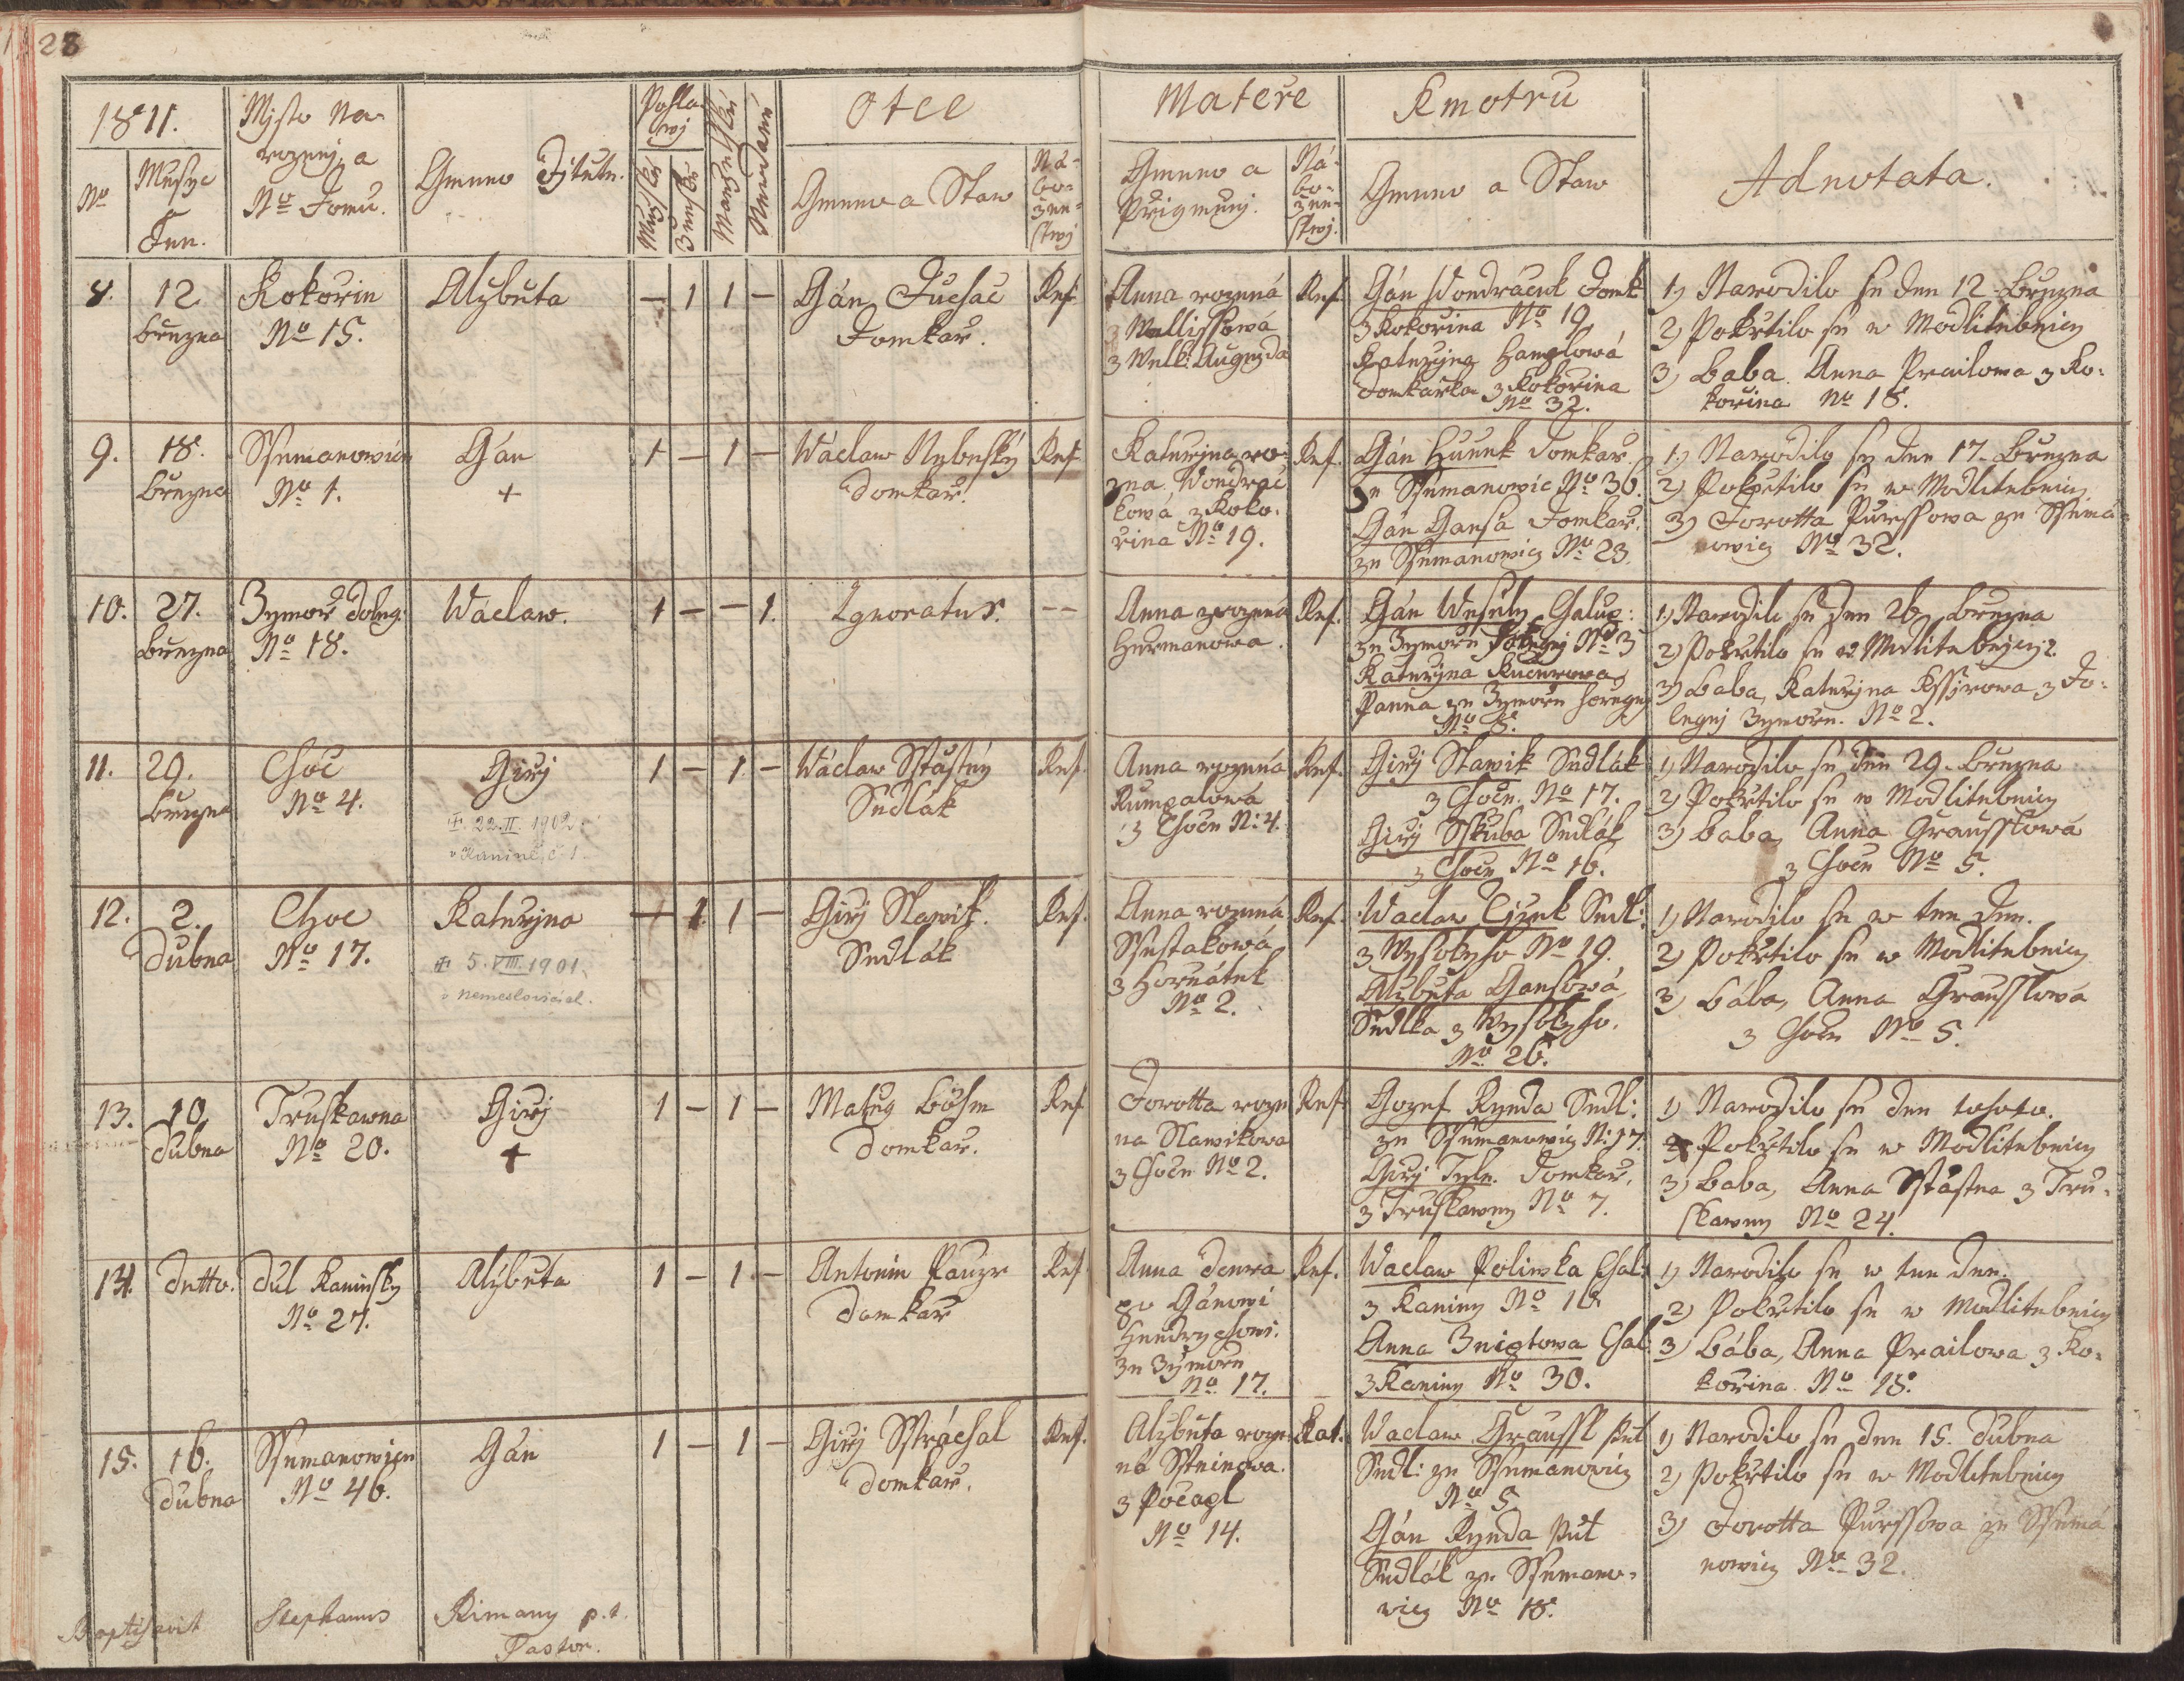 28
1811.
Mjsto Na-
rozenj a
No Domu.
No
Mesyc
Den.
Gmeno Djtete.
Pohla-
wj
Mužské
Ženské
Manželské
Otce
Gmeno a Staw
Ná-
bo-
žen-
stwj
Matere
Gmeno a
Přigmenj.
Ná-
bo-
žen-
stwj.
Kmotru
Gmeno a Staw
Adnotata.
8. 12 Března
Kokorin
No 15.
Alžběta
— 1 1 —
Gán Duchac
Domkař.
Ref.
Anna rozená
Wallissowá
z Welk: Augezda
Ref.
Gán Wondracek Domk
z Kokorina No 19
Kateržina Hanzlowá
Domkařka z Kokorina
No 32.
1) Narodilo se den 12 Března
2) Pokřtilo se w Modlitebnicy
3) Baba Anna Prailowa z Ko-
kořina No 18.
9. 18. Března
Ssemanowice
No 1.
Gán
+
1 — 1 —
Wáclaw Nebeský
Domkař.
Ref.
Kateržina ro-
zena Wondrač
kowá z Koko-
řina No 19.
Ref.
Gán Domkař
ze Ssemanowic No 36.
Gán Gansa Domkař.
ze Ssemanowicz No 23.
1) Narodilo se den 17. Března
2) Pokřtilo se w Modlitebnicy
3) Dorotta Puressowa ze Ssema-
nowicz No 32.
10. 27. Března
Zymoř Doleg.
No 18.
Wáclaw.
1 — — 1.
Ignoratus.
— —
Anna zrozená
Heřmanowa.
Ref.
Gán Weselý Chalup:
ze Zymoře Dolegnj No 3
Kateržina Kucerowa
Panna ze Zymoře Horegnj
No 8.
1) Narodilo se den 26 Března
2) Pokřtilo se w Modlitebnicy
3) Baba, Kateržina z Do-
legnj Zymoře. No 2.
11. 29. Března
Choc
No 4.
Giřj
† 22.II.1902
v Kanině č. 1.
1 — 1 —
Wáclaw Sstastný
Sedlák
Ref.
Anna rozená
Rumpalowá
z Choce N: 4.
Ref.
Giřj Slawik Sedlák
z Choce. No 17.
Giřj Sskuba Sedlák
z Choce No 16.
1) Narodilo se den 29. Března
2) Pokřtilo se w Modlitebnicy
3) Baba, Anna Graussłowá
z Choce No 5.
12. 2. Dubna
Choc
No 17.
Kateržina
† 5.VIII.1901.
v Nemeslovicích.
— 1 1 —
Giřj Slawik.
Sedlák
Ref.
Anna rozená
Ssestakowá
z Hornátek
No 2.
Ref.
Waclaw Cjzek Sedl:
z Wysokeho No 19.
Alžběta Gansowá
Sedlka z Wysokeho.
No 26.
1) Narodilo se w ten Den.
2) Pokřtilo se w Modlitebnicy
3) Baba, Anna Grausslowá
z Choce No 5.
13. 10. Dubna
Truskawna
No 20.
Giřj
+
1 — 1 —
Matěg Böhm
Domkař.
Ref
Dorotta roze
na Slawikowa
z Choce No 2.
Ref
Gozef Rynda Sedl:
ze Ssemanowicz N: 17.
Giřj Tyle. Domkař,
z Truskawny No 7.
1) Narodilo se den tohoto.
2) Pokřtilo se w Modlitebnicy
3) Baba, Anna Sstastna z Tru-
skawny No 24.
14. Detto.
Důl Kaninsky
No 27.
Alžběta
1 — 1. —
Antonin Pauzr
Domkař
Ref
Anna Dcera
po Gánowi
Hendrychowi.
ze Zymoře
No 17.
Ref.
Waclaw Poliwka Chal:
z Kaniny No 16
Anna Chal
z Kaniny No 30.
1) Narodilo se w ten den.
2) Pokřtilo se w Modlitebnicy
3) Bába, Anna Prailowa z Ko-
kořina No 18.
15. 16. Dubna
Ssemanowice
No 46.
Gán
1 — 1 —
Giřj Stráchal
Domkař.
Ref.
Alžběta roze-
ná Ssteinowa.
z Počapl
No 14.
Kat.
Waclaw Graussl půl
Sedl: ze Ssemanowicz
No 5
Gán Rynda půl
Sedlák ze Ssemano-
wicz No 18.
1) Narodilo se den 15. Dubna
2) Pokřtilo se w Modlitebnicy
3) Dorotta Puressowa ze Ssema
nowicz No 32.
Baptisavit Stephanus Rimany p.t.
Pastor.